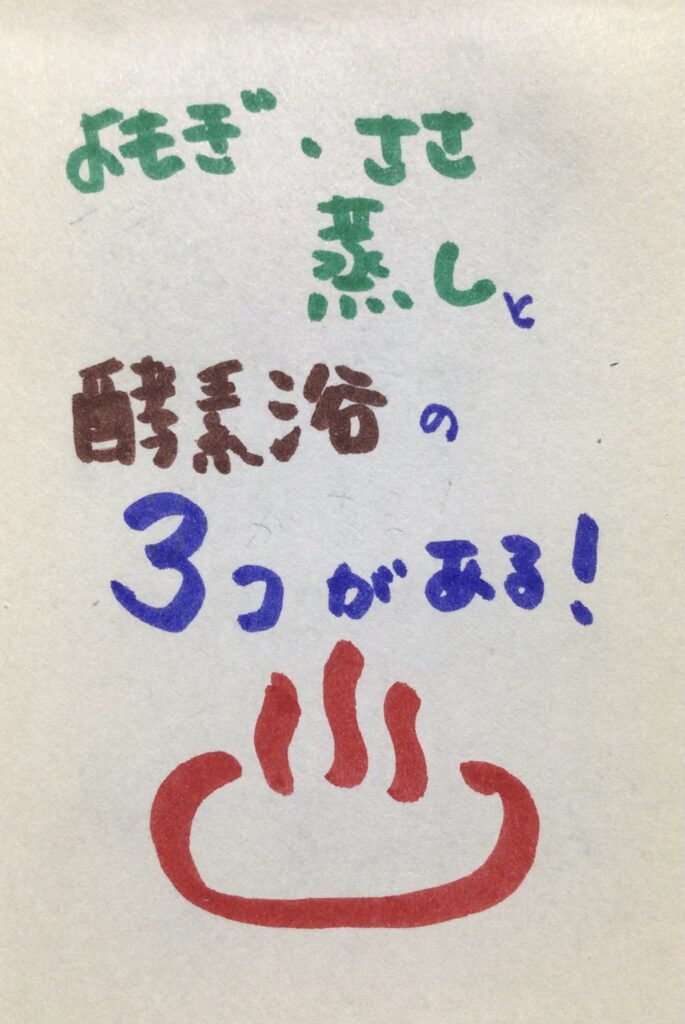 よもぎ・ささ
蒸しと
酵素浴の
3つがある!